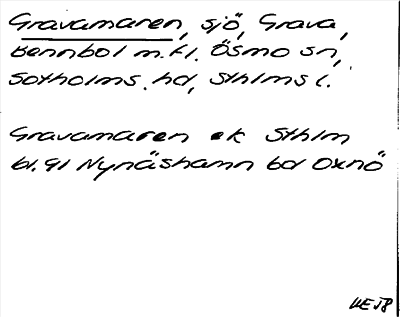 Gravamaren, sjö, Grava,
Bennbol m.fl. Ösmo sn,
Sotholms hd, Sthlms l.
Gravamaren ek Sthlm
bl. 91 Nynäshamn bd Oxnö
WE 58